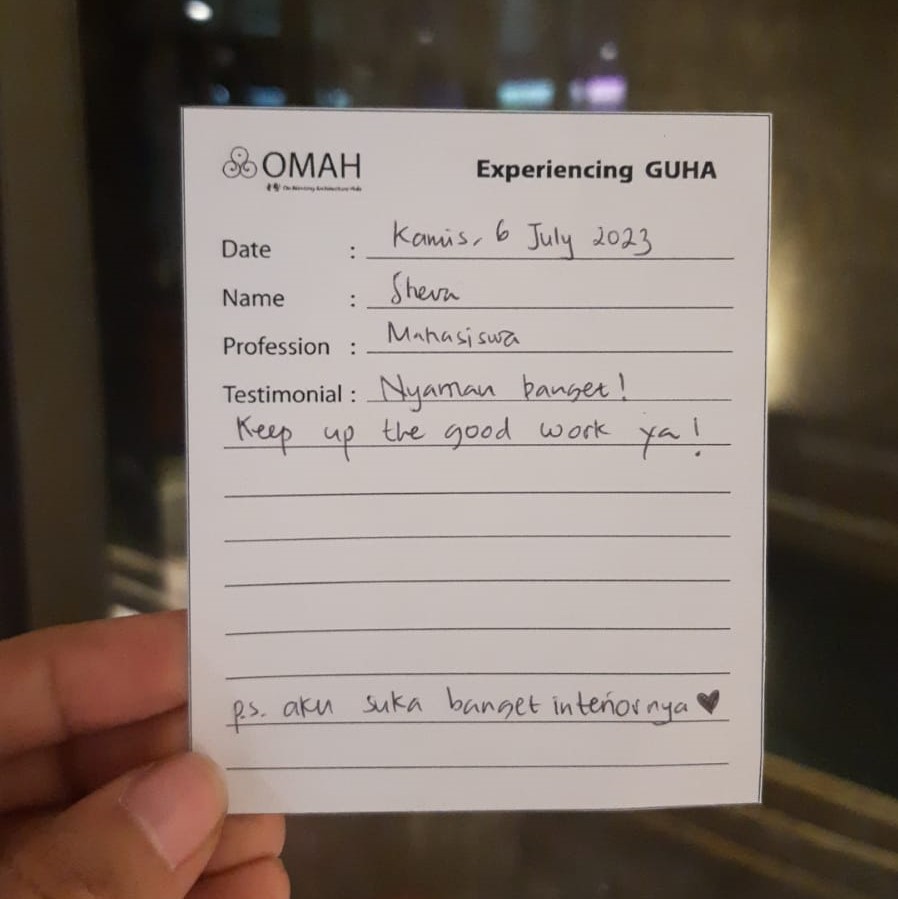 OMAH
Experiencing GUHA
Date : Kamis, 6 July 2023
Name : Sheva
Profession : Mahasiswa
Testimonial : Nyaman banget!
Keep up the good work ya!
p.s. aku suka banget interiornya ♥